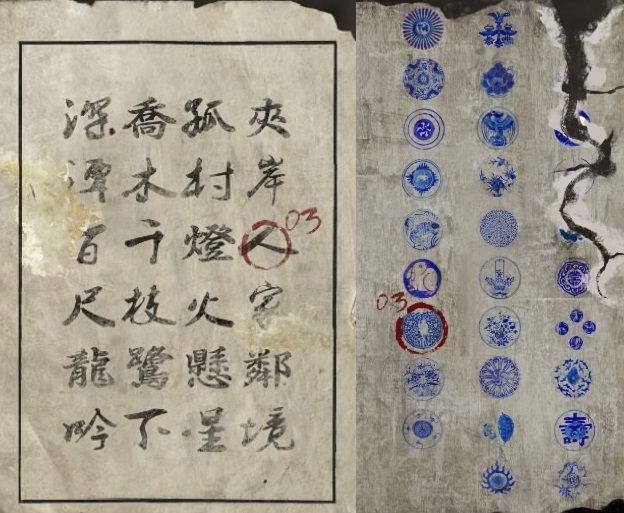 夾岸人家鄰境
孤村燈火懸星
喬木千枝鷺下
深潭百尺龍吟
03
03
壽